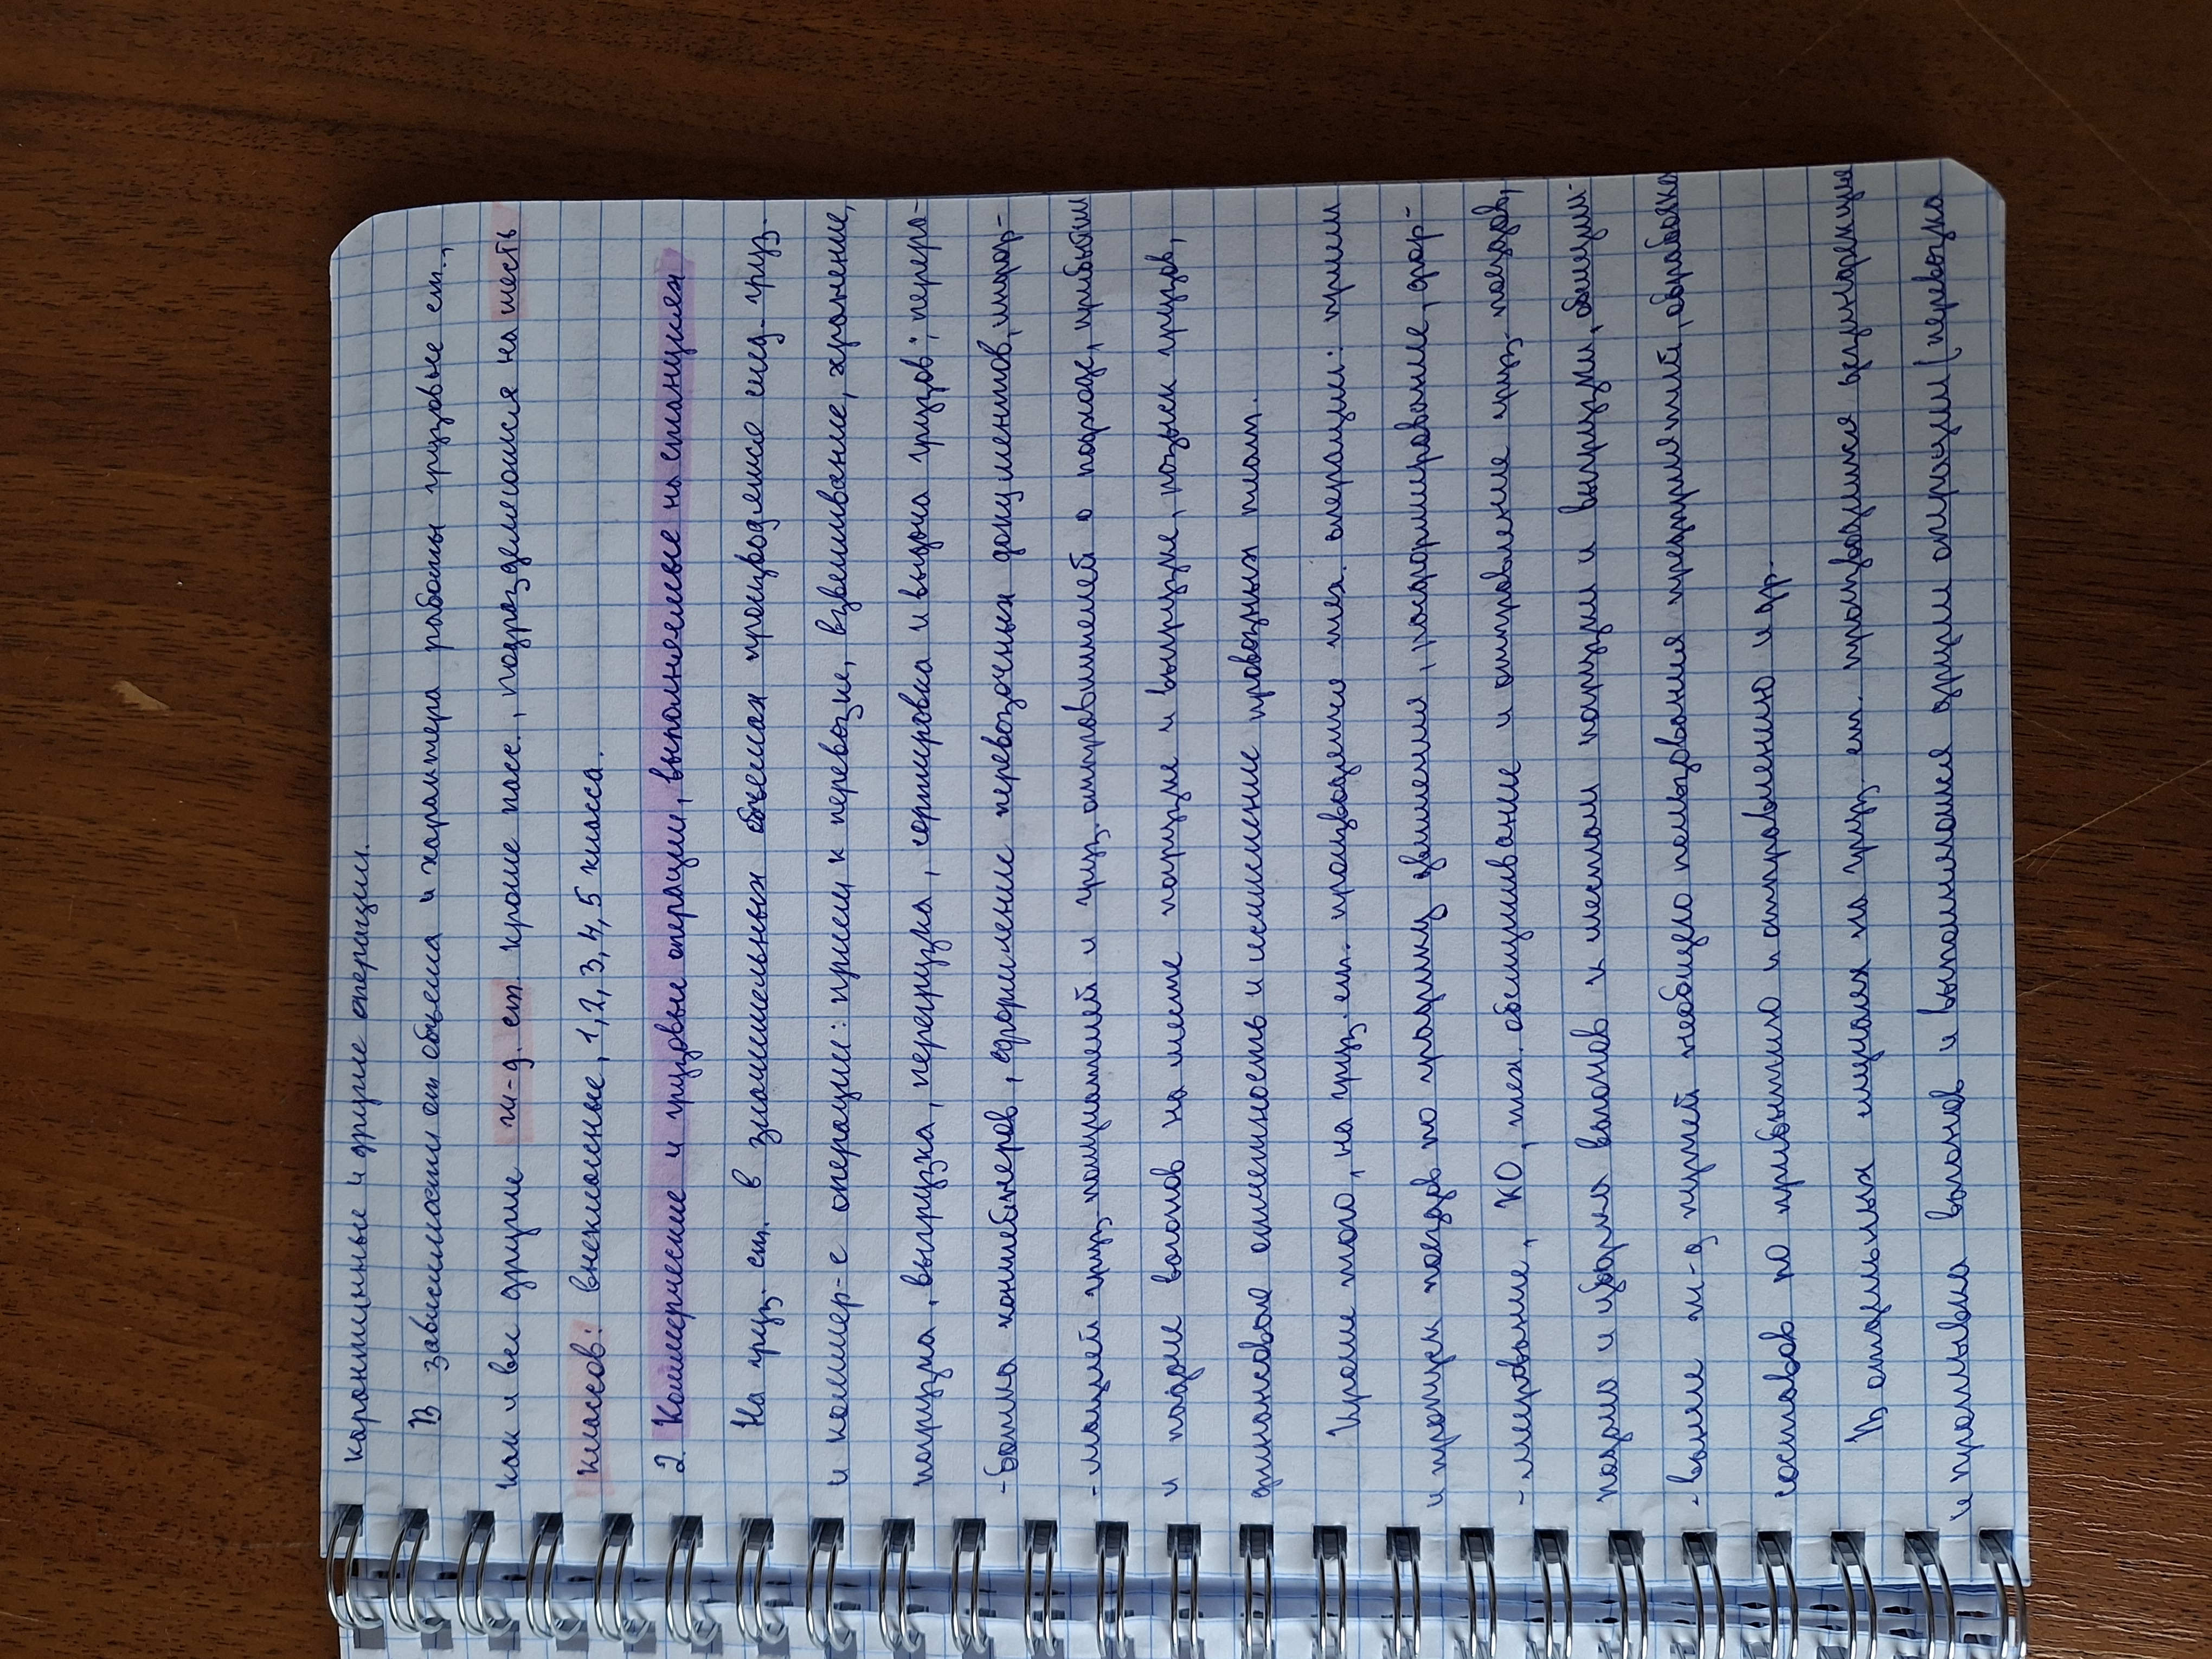 карантинные и другие операции.
В зависимости от объема и характера работы грузовые ст.,
как и все другие ж-д. ст. кроме пасс., подразделяются на шесть
классов: внеклассные, 1, 2, 3, 4, 5 класса.
2. Коммерческие и грузовые операции, выполняемые на станциях
На груз. ст. в значительных объемах производятся след. груз.
и коммер-е операции: прием к перевозке, взвешивание, хранение,
погрузка, выгрузка, перегрузка, сортировка и выдача грузов; перера-
-ботка контейнеров, оформление перевозочных документов, инфор-
-мацией груз. получателей и груз. отправителей о подходе, прибытии
и подаче вагонов на месте погрузке и выгрузке, розыск грузов,
финансовые отчетность и исчисление провозных плат.
Кроме того, на груз. ст. производятся тех. операции: прием
и пропуск поездов по графику движения, расформирование, фор-
-мирование, КО, тех. обслуживание и отправление груз. поездов,
подача и уборка вагонов к местам погрузки и выгрузки, обслужи-
-вание ж-д путей необщего пользования предприятий, обработка
составов по прибытию и отправлению и др.
В отдельных случаях на груз. ст. производится экипировка
и промывка вагонов и выполняются другие операции (перевозка